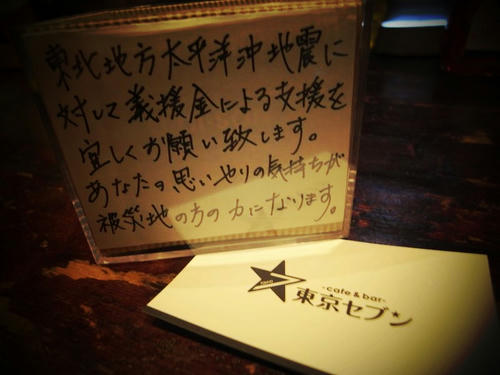 東北地方太平洋沖地震に
対して義援金による支援を
宜しくお願い致します。
あなたの思いやりの気持ちが
被災地の方の力になります。
-cafe & bar-
東京セブン